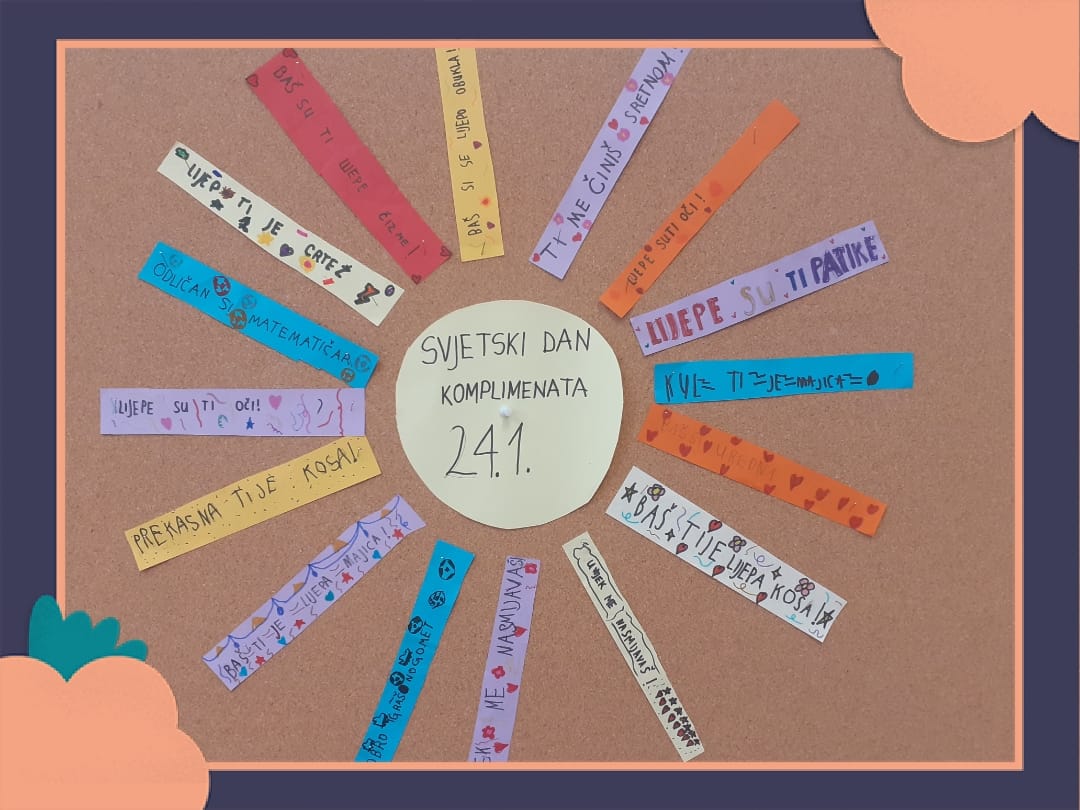 SVJETSKI DAN
KOMPLIMENATA
24.1.
BAŠ SI SE LIJEPO OBUKLA!
TI ME ČINIŠ SRETNOM!
LIJEPE SU TI OČI!
LIJEPE SU TI PATIKE
KUL TI JE MAJICA
UREDNA
BAŠ TI JE LIJEPA KOSA!
UVIJEK ME NASMIJAVAŠ!
ME NASMIJAVAŠ
DOBRO IGRAŠ NOGOMET
BAŠ TI JE LIJEPA MAJICA!
PREKASNA TI JE KOSA!
LIJEPE SU TI OČI!
ODLIČAN SI MATEMATIČAR
LIJEP TI JE CRTEŽ
BAŠ SU TI LIJEPE ČIZME!